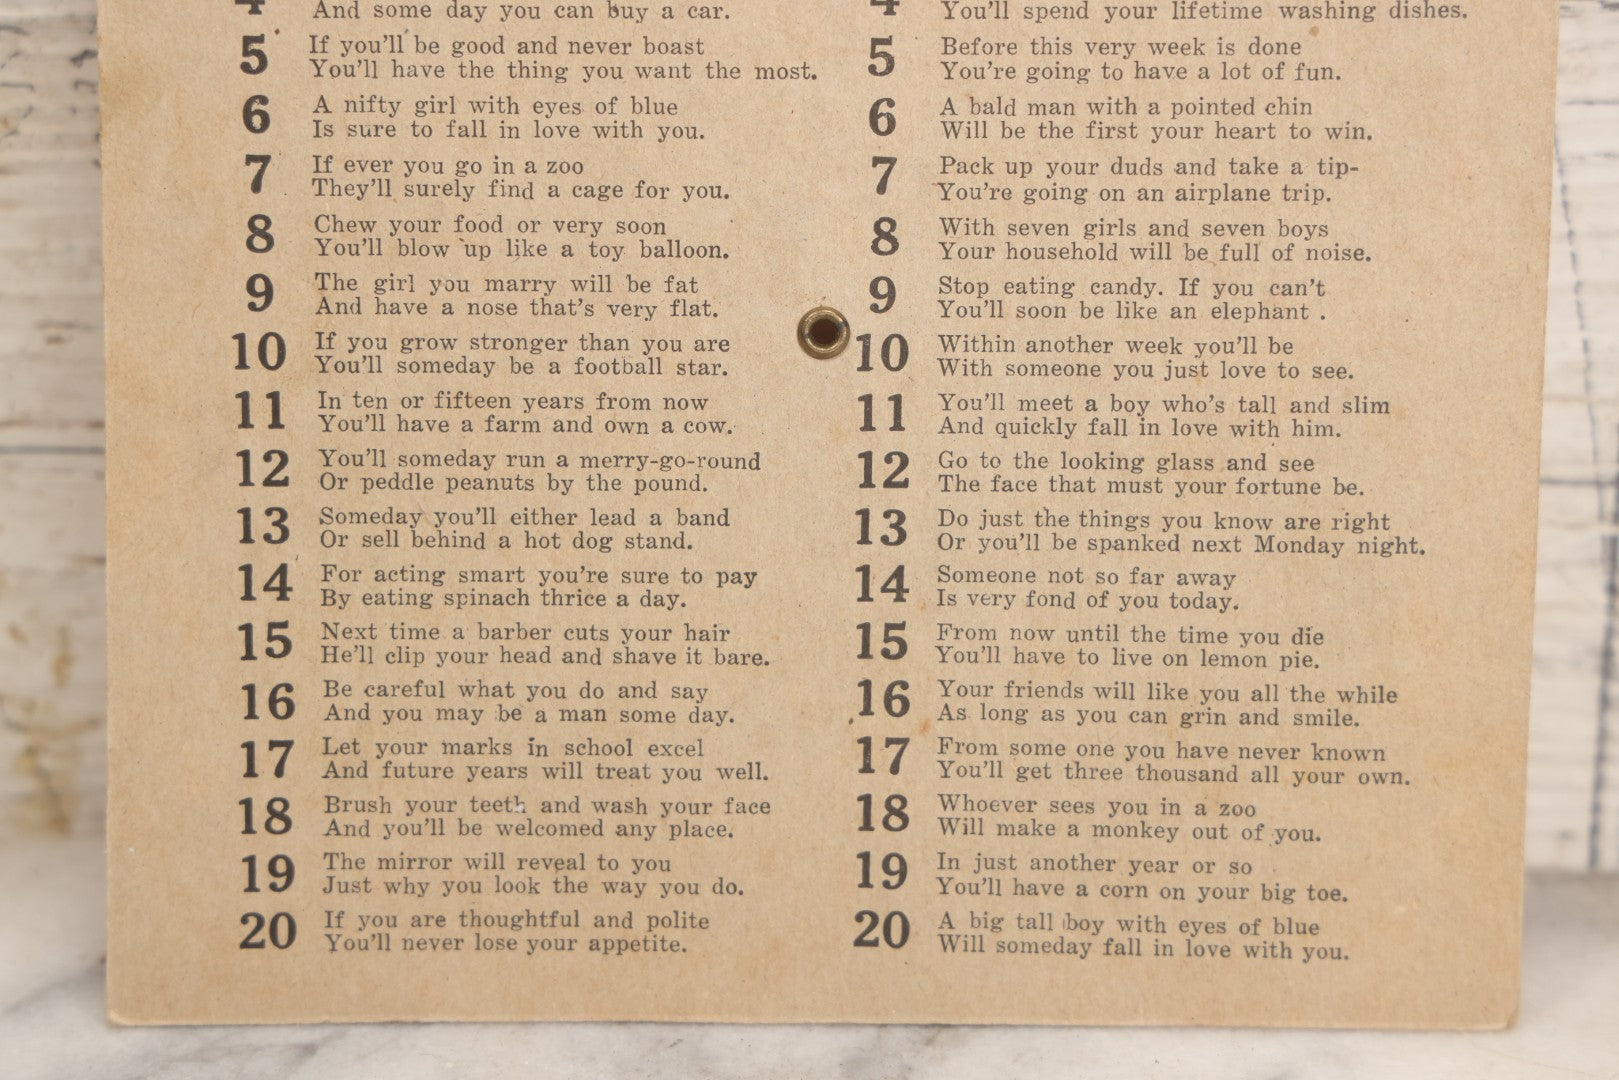 4 And some day you can buy a car.
5 If you'll be good and never boast
You'll have the thing you want the most.
6 A nifty girl with eyes of blue
Is sure to fall in love with you.
7 If ever you go in a zoo
They'll surely find a cage for you.
8 Chew your food or very soon
You'll blow up like a toy balloon.
9 The girl you marry will be fat
And have a nose that's very flat.
10 If you grow stronger than you are
You'll someday be a football star.
11 In ten or fifteen years from now
You'll have a farm and own a cow.
12 You'll someday run a merry-go-round
Or peddle peanuts by the pound.
13 Someday you'll either lead a band
Or sell behind a hot dog stand.
14 For acting smart you're sure to pay
By eating spinach thrice a day.
15 Next time a barber cuts your hair
He'll clip your head and shave it bare.
16 Be careful what you do and say
And you may be a man some day.
17 Let your marks in school excel
And future years will treat you well.
18 Brush your teeth and wash your face
And you'll be welcomed any place.
19 The mirror will reveal to you
Just why you look the way you do.
20 If you are thoughtful and polite
You'll never lose your appetite.
4 You'll spend your lifetime washing dishes.
5 Before this very week is done
You're going to have a lot of fun.
6 A bald man with a pointed chin
Will be the first your heart to win.
7 Pack up your duds and take a tip-
You're going on an airplane trip.
8 With seven girls and seven boys
Your household will be full of noise.
9 Stop eating candy. If you can't
You'll soon be like an elephant .
10 Within another week you'll be
With someone you just love to see.
11 You'll meet a boy who's tall and slim
And quickly fall in love with him.
12 Go to the looking glass and see
The face that must your fortune be.
13 Do just the things you know are right
Or you'll be spanked next Monday night.
14 Someone not so far away
Is very fond of you today.
15 From now until the time you die
You'll have to live on lemon pie.
16 Your friends will like you all the while
As long as you can grin and smile.
17 From some one you have never known
You'll get three thousand all your own.
18 Whoever sees you in a zoo
Will make a monkey out of you.
19 In just another year or so
You'll have a corn on your big toe.
20 A big tall boy with eyes of blue
Will someday fall in love with you.